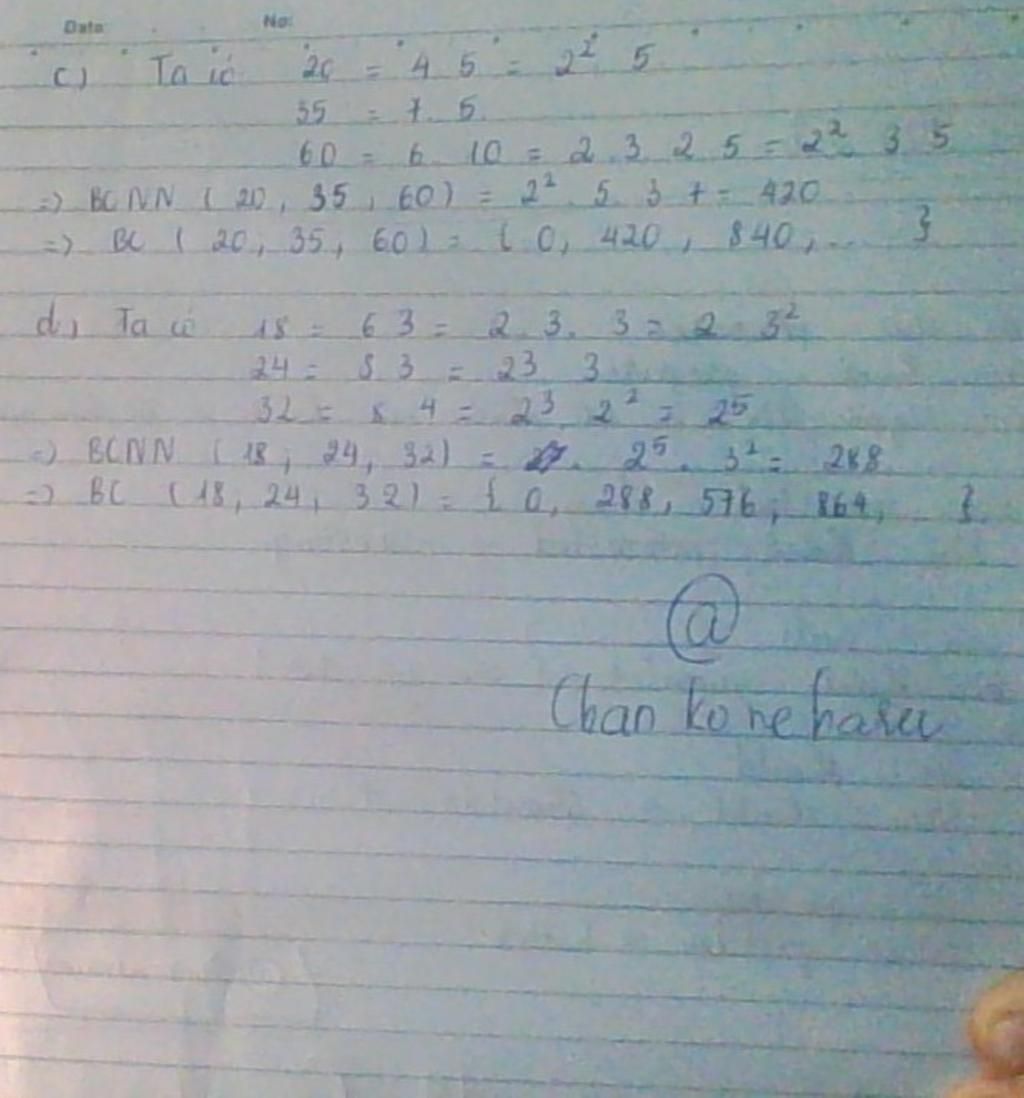 Date No:
c) Ta có 20 = 4 5 = 2² 5
35 = 7. 5
60 = 6 10 = 2 .3 2 5 = 2² 3 5
=) BCNN ( 20, 35, 60) = 2² 5 3 7 = 420
=) BC ( 20, 35, 60) = { 0, 420, 840, ... }
d, Ta có 18 = 6 3 = 2 3. 3 = 2 3²
24 = 8 3 = 2³ 3
32 = 8 4 = 2³. 2² = 2⁵
=) BCNN (18, 24, 32) = 2⁵. 3² = 288
=) BC (18, 24, 32) = { 0, 288, 576, 864, }
@
Chan ko ne